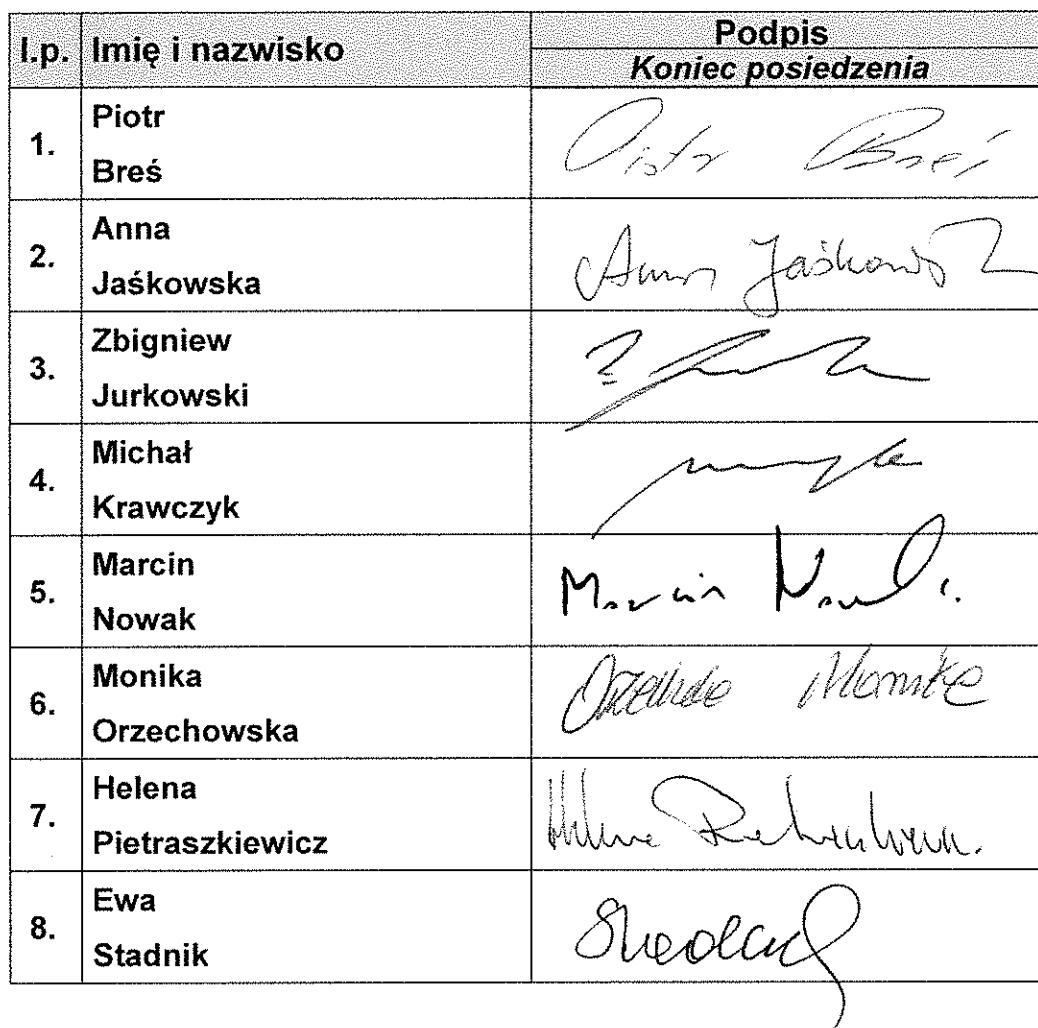 l.p. Imię i nazwisko Podpis
Koniec posiedzenia
1. Piotr
Breś
Piotr Breś
2. Anna
Jaśkowska
Anna Jaśkowska
3. Zbigniew
Jurkowski
4. Michał
Krawczyk
5. Marcin
Nowak
Marcin Nowak
6. Monika
Orzechowska
Monika
7. Helena
Pietraszkiewicz
Helena
8. Ewa
Stadnik